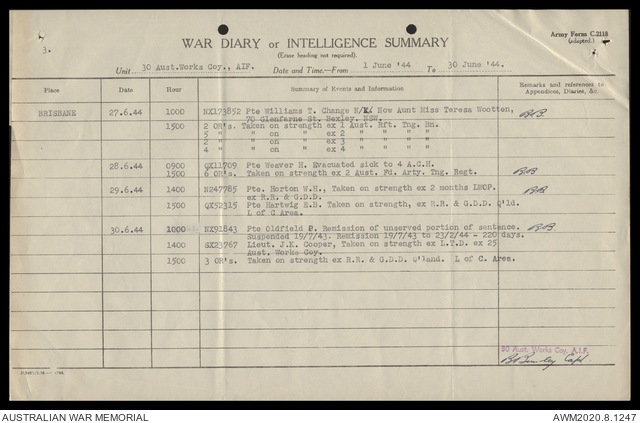 3.
WAR DIARY or INTELLIGENCE SUMMARY
(Erase heading not required).
Army Form C.2118
(adapted.)
Unit 30 Aust.Works Coy., AIF. Date and Time:—From 1 June '44 To 30 June '44.
Place Date Hour Summary of Events and Information Remarks and references to
Appendices, Diaries, &c.
BRISBANE 27.6.44 1000 NX173852 Pte Williams T. Change N/K. Now Aunt Miss Teresa Wootten,
70 Glenfarne St. Bexley. NSW.
1500 2 OR's. Taken on strength ex 1 Aust. Rft. Tng. Bn.
5 " " on " ex 2 " " " "
2 " " on " ex 3 " " " "
4 " " on " ex 4 " " " "
28.6.44 0900 QX11709 Pte Weaver H. Evacuated sick to 4 A.C.H.
1500 6 OR's. Taken on strength ex 2 Aust. Fd. Arty. Tng. Regt.
29.6.44 1400 N247785 Pte. Horton W.H., Taken on strength ex 2 months LWOP.
ex R.R. & G.D.D.
1500 QX52315 Pte Hartwig E.B. Taken on strength, ex R.R. & G.D.D. Q'ld.
L of C Area.
30.6.44 1000 NX91843 Pte Oldfield P. Remission of unserved portion of sentence.
Suspended 19/7/43. Remission 19/7/43 to 23/2/44 - 220 days.
1400 SX23767 Lieut. J.K. Cooper, Taken on strength ex L.T.D. ex 25
Aust. Works Coy.
1500 3 OR's. Taken on strength ex R.R. & G.D.D. Q'land. L of C. Area.
30 Aust. Works Coy, A.I.F.
Capt
AUSTRALIAN WAR MEMORIAL
AWM2020.8.1247